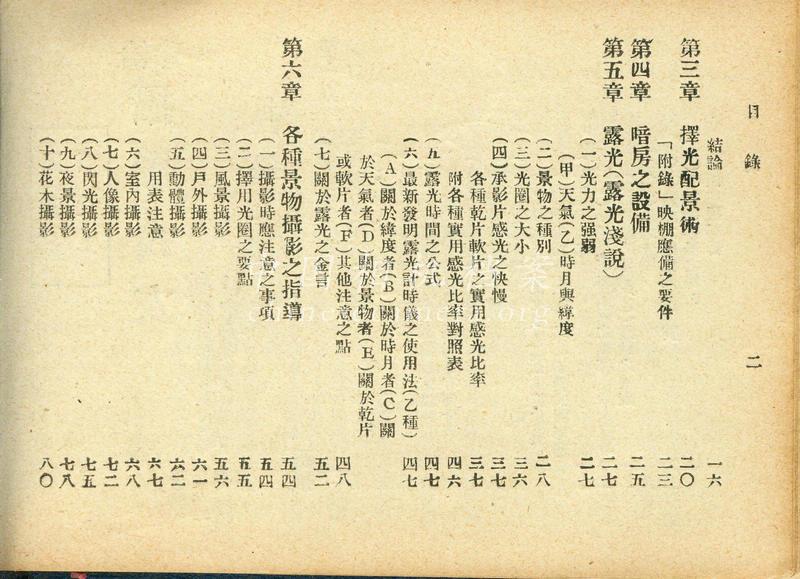 目錄
二
結論 一六
第三章 擇光配景術 二〇
「附錄」映棚應備之要件 二三
第四章 暗房之設備 二五
第五章 露光(露光淺說) 二七
(一)光力之强弱 二七
(甲)天氣(乙)時月與緯度
(二)景物之種別 二八
(三)光圈之大小 三六
(四)承影片感光之快慢 三七
各種乾片軟片之實用感光比率 三七
附各種實用感光比率對照表 四六
(五)露光時間之公式 四七
(六)最新發明露光計時儀之使用法(乙種) 四七
(A)關於緯度者(B)關於時月者(C)關
於天氣者(D)關於景物者(E)關於乾片
或軟片者(F)其他注意之點 四八
(七)關於露光之金言 五二
第六章 各種景物攝影之指導 五四
(一)攝影時應注意之事項 五四
(二)擇用光圈之要點 五五
(三)風景攝影 五六
(四)戶外攝影 六一
(五)動體攝影 六二
用表注意 六七
(六)室內攝影 六八
(七)人像攝影 七二
(八)閃光攝影 七五
(九)夜景攝影 七八
(十)花木攝影 八〇